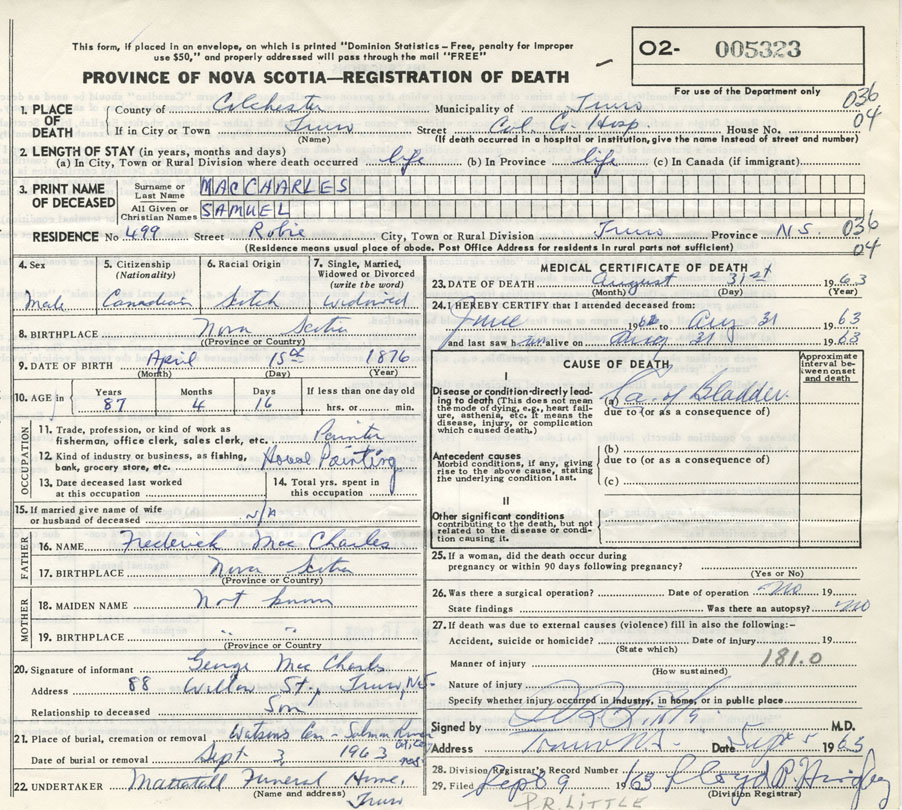 This form, if placed in an envelope, on which is printed "Dominion Statistics – Free, penalty for improper
use $50," and properly addressed will pass through the mail "FREE"
O2- 005323
PROVINCE OF NOVA SCOTIA—REGISTRATION OF DEATH
For use of the Department only
1. PLACE OF DEATH County of Colchester Municipality of Truro 036
If in City or Town Truro Street Col. Co. Hosp House No. 04
(Name) (If death occurred in a hospital or institution, give the name instead of street and number)
2. LENGTH OF STAY (in years, months and days)
(a) In City, Town or Rural Division where death occurred life (b) In Province life (c) In Canada (if immigrant)
3. PRINT NAME OF DECEASED Surname or Last Name MACCHARLES
All Given or Christian Names SAMUEL
RESIDENCE No 499 Street Robie City, Town or Rural Division Truro Province N.S. 036
(Residence means usual place of abode. Post Office Address for residents in rural parts not sufficient) 04
4. Sex 5. Citizenship (Nationality) 6. Racial Origin 7. Single, Married, Widowed or Divorced (write the word)
Male Canadian Scotch Widowed
8. BIRTHPLACE Nova Scotia
(Province or Country)
9. DATE OF BIRTH April 15th 1876
(Month) (Day) (Year)
10. AGE in Years Months Days If less than one day old
87 4 16 hrs. or min.
OCCUPATION
11. Trade, profession, or kind of work as
fisherman, office clerk, sales clerk, etc. Painter
12. Kind of industry or business, as fishing,
bank, grocery store, etc. House Painting
13. Date deceased last worked
at this occupation
14. Total yrs. spent in
this occupation
15. If married give name of wife
or husband of deceased N/A
FATHER
16. NAME Frederick Mac Charles
17. BIRTHPLACE Nova Scotia
(Province or Country)
MOTHER
18. MAIDEN NAME Not known
19. BIRTHPLACE " "
(Province or Country)
20. Signature of informant George Mac Charles
Address 88 Willow St., Truro, N.S.
Relationship to deceased Son
21. Place of burial, cremation or removal Watsons Cem - Salmon River
Date of burial or removal Sept 3, 1963
22. UNDERTAKER Mattatall Funeral Home,
(Name and address) Truro
MEDICAL CERTIFICATE OF DEATH
23. DATE OF DEATH August 31st 1963
(Month) (Day) (Year)
24. I HEREBY CERTIFY that I attended deceased from:
June 1962 to Aug 31 1963
and last saw him alive on Aug 31 1963
CAUSE OF DEATH
Approximate interval between onset and death
I
Disease or condition directly leading
to death (This does not mean
the mode of dying, e.g., heart failure,
asthenia, etc. It means the
disease, injury, or complication
which caused death.)
(a) Ca. of Bladder
due to (or as a consequence of)
Antecedent causes
Morbid conditions, if any, giving
rise to the above cause, stating
the underlying condition last.
(b)
due to (or as a consequence of)
(c)
II
Other significant conditions
contributing to the death, but not
related to the disease or condition
causing it.
25. If a woman, did the death occur during
pregnancy or within 90 days following pregnancy?
(Yes or No)
26. Was there a surgical operation? Date of operation no 19
State findings Was there an autopsy? no
27. If death was due to external causes (violence) fill in also the following:–
Accident, suicide or homicide? Date of injury 19
(State which)
Manner of injury 181.0
(How sustained)
Nature of injury
Specify whether injury occurred in industry, in home, or in public place
Signed by M.D.
Address Truro N.S. Date Sept 5 1963
28. Division Registrar's Record Number
29. Filed Sept 9 1963 Lloyd P.
(Division Registrar)
P.R. LITTLE